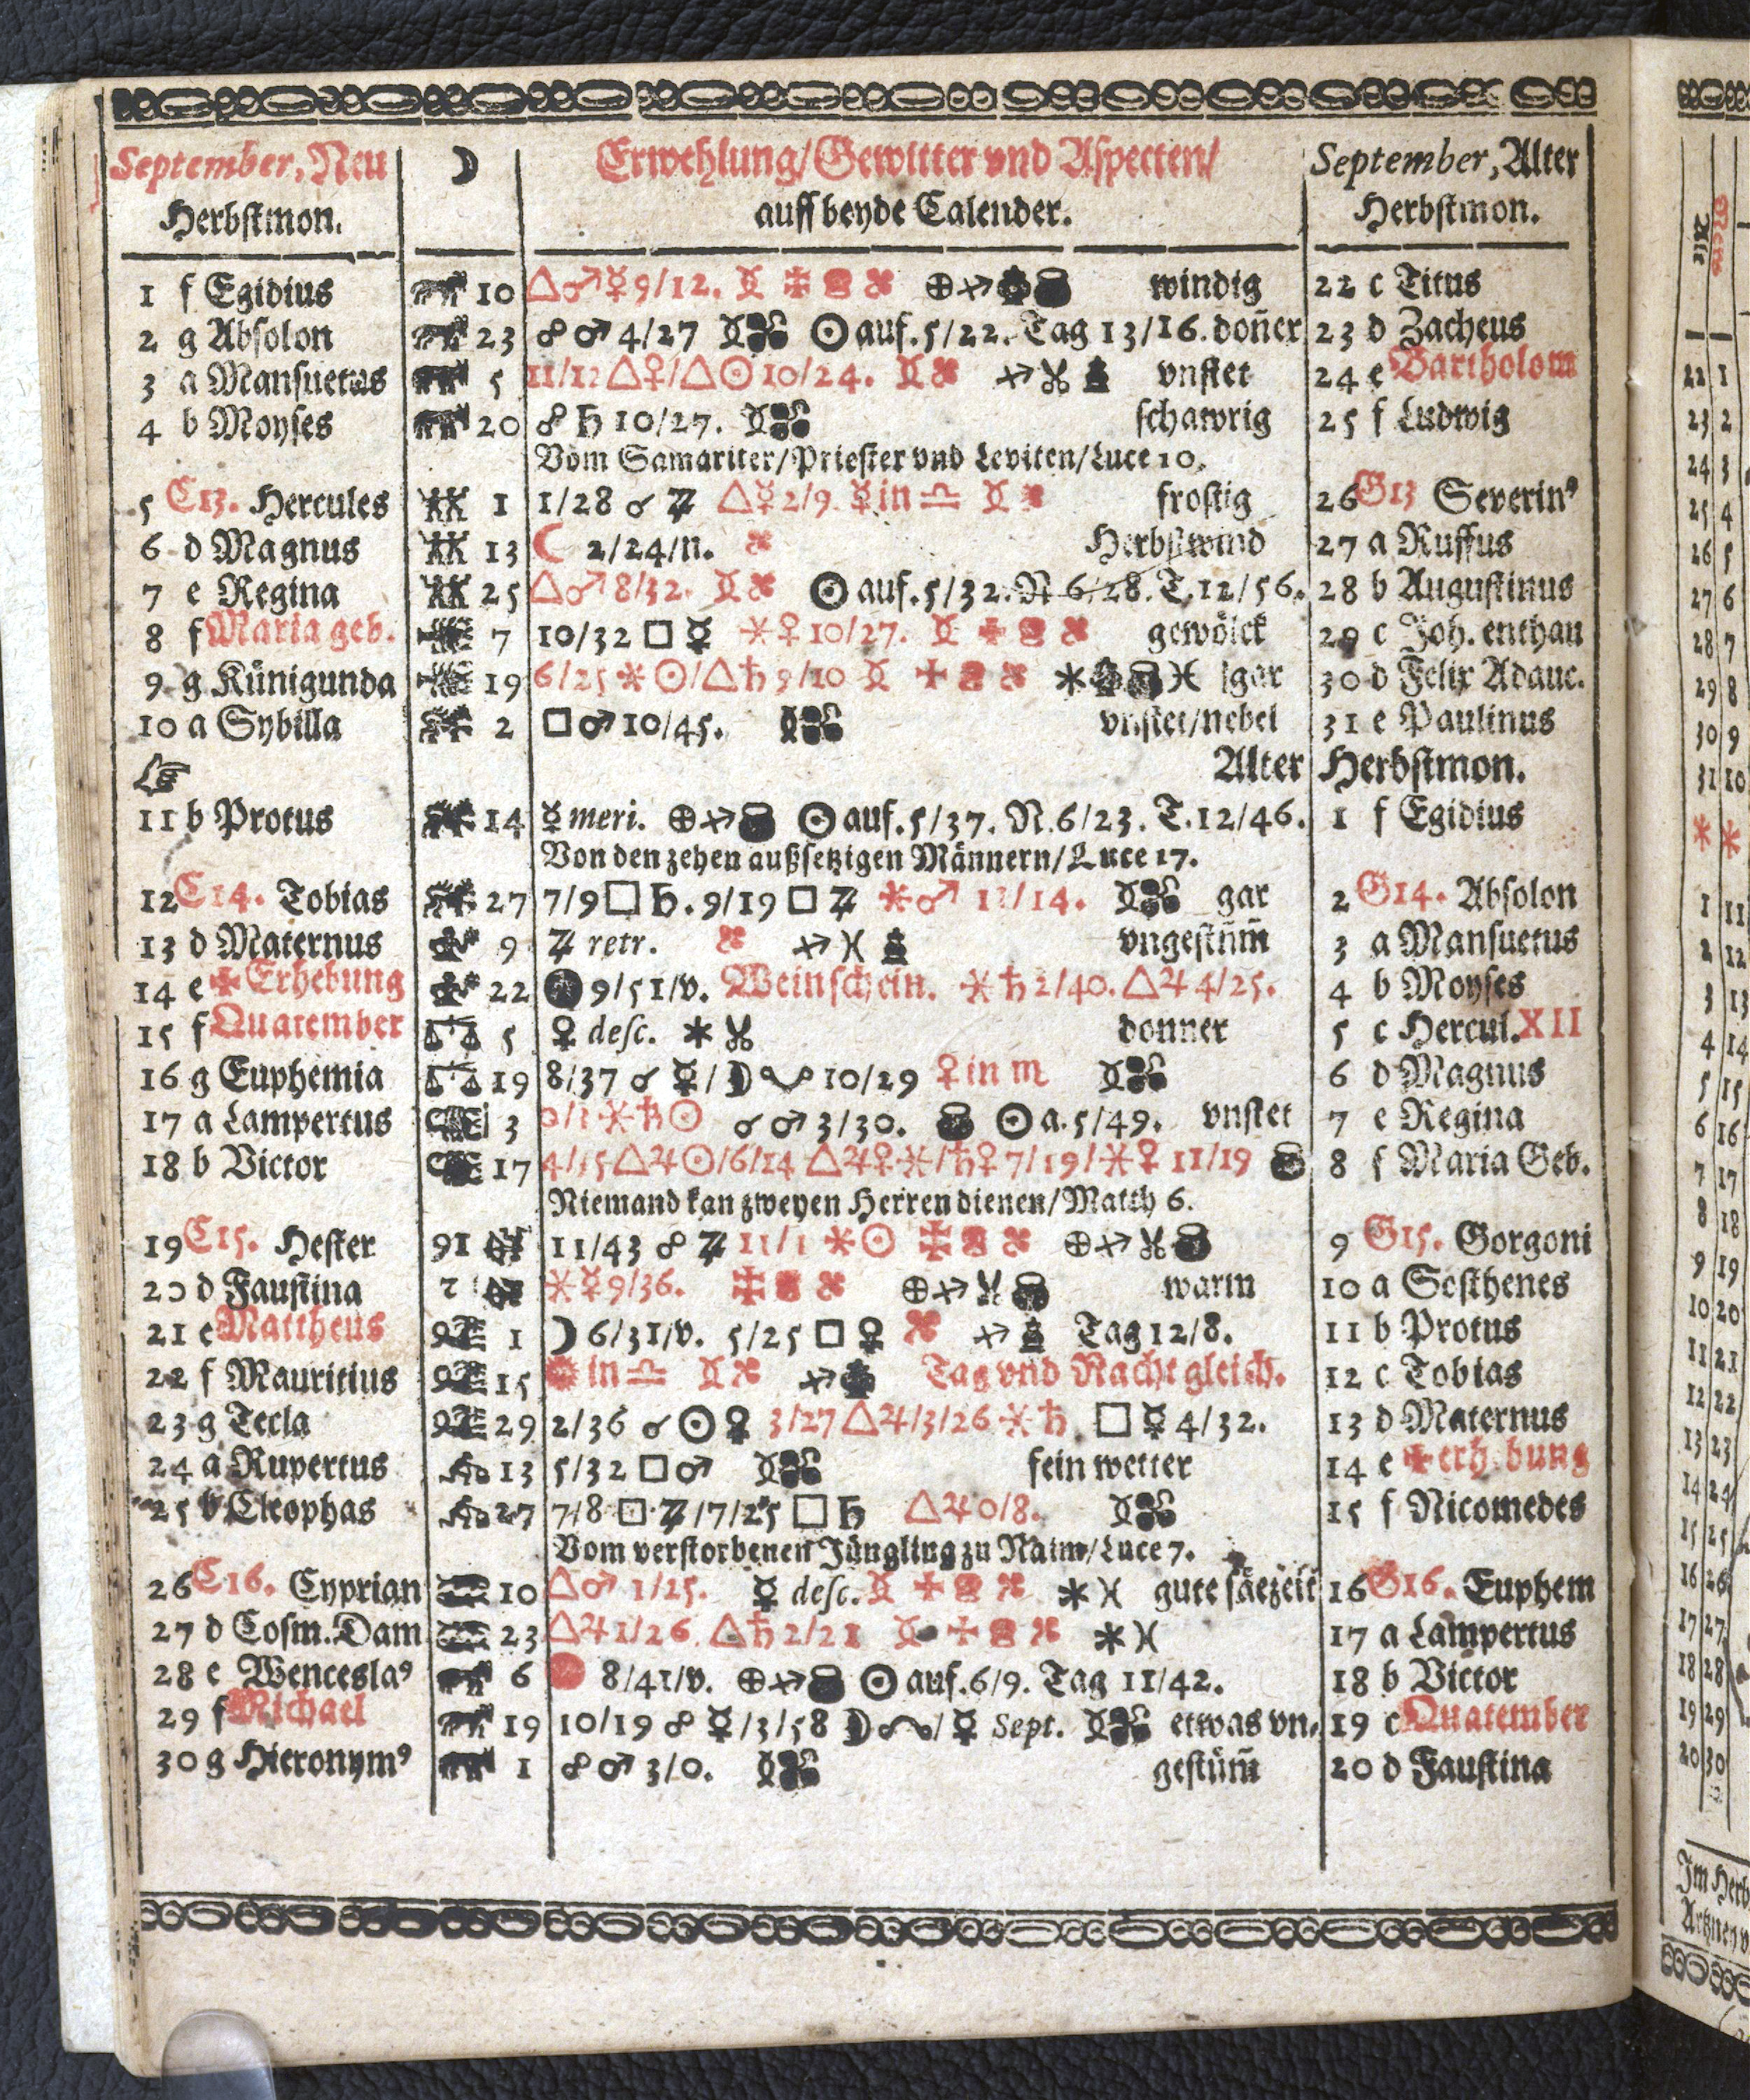 September, Neu ☽ Erwehlung/Gewitter vnd Aspecten/ September, Alter
Herbstmon. auff beyde Calender. Herbstmon.
1 f Egidius 10 △♂☿9/12. ⊕ windig 22 c Titus
2 g Absolon 23 ☍♂ 4/27 ☉auf.5/22. Tag 13/16. don̄er 23 d Zacheus
3 a Mansuetus 5 11/12△♀/△☉10/24. vnstet 24 e Bartholom
4 b Moyses 20 ☍♄10/27. schawrig 25 f Ludwig
Vom Samariter/Priester vnd Leviten/Luce 10.
5 C13. Hercules ♊ 1 1/28 ☌ ♃ △☿2/9. ☿in♎ frostig 26 G13 Severinꝰ
6 d Magnus 13 ☾ 2/24/n. Herbstwind 27 a Ruffus
7 e Regina 25 △♂8/32. ☉auf.5/32.N 6/28.T.12/56. 28 b Augustinus
8 f Maria geb. 7 10/32□☿ ⚹♀10/27. gewölck 29 c Joh. enthau
9 g Künigunda 19 6/25⚹☉/△♄9/10 ♓ [gar 30 d Felix Adauc.
10 a Sybilla 2 □♂10/45. vnstet/nebel 31 e Paulinus
☞ Alter Herbstmon.
11 b Protus 14 ☿meri. ⊕ ☉auf.5/37. N.6/23. T.12/46. 1 f Egidius
Von den zehen außsetzigen Männern/Luce 17.
12 C14. Tobias 27 7/9□♄.9/19□ ⚹♂ 11/14. gar 2 G14. Absolon
13 d Maternus 9 retr. ♓ vngestüm̄ 3 a Mansuetus
14 e ✠Erhebung 22 ● 9/51/v. Weinschein. ⚹♄2/40.△♃4/25. 4 b Moyses
15 f Quatember ♎ 5 ♀ desc. donner 5 c Hercul.XII
16 g Euphemia ♎ 19 8/37 ☌☿/☽ 10/29 ♀in♏ 6 d Magnus
17 a Lampertus 3 0/1⚹♄☉ ☌♂3/30. ☉a.5/49. vnstet 7 e Regina
18 b Victor 17 4/15△♃☉/6/14 △♃♀⚹/♄♀7/19/⚹♀ 11/19 8 f Maria Geb.
Niemand kan zweyen Herren dienen/Matth 6.
19 C15. Hester 11/43 ☍ 11/1 ⚹☉ ⊕ 9 G15. Gorgoni
20 d Faustina ⚹☿9/36. ⊕ warm 10 a Sosthenes
21 e Mattheus 1 ☽6/31/v. 5/25□♀ Tag12/8. 11 b Protus
22 f Mauritius 15 in♎ Tag vnd Nacht gleich. 12 c Tobias
23 g Tecla 29 2/36 ☌☉♀ 3/27△♃/3/26⚹♄ □☿4/32. 13 d Maternus
24 a Rupertus 13 5/32□♂ fein wetter 14 e ✠erh bung
25 b Cleophas 27 7/8□/7/25□♄ △♃0/8. 15 f Nicomedes
Vom verstorbenen Jüngling zu Naim/Luce 7.
26 C16. Cyprian 10 △♂ 1/25. ☿ desc. ♓ gute säezeit 16 G16. Euphem
27 d Cosm.Dam 23 △♃1/26. △♄2/21 ♓ 17 a Lampertus
28 e Wenceslaꝰ 6 8/41/v. ⊕ ☉auf.6/9. Tag 11/42. 18 b Victor
29 f Michael 19 10/19 ☍☿/3/58 ☽/☿ Sept. etwas vn- 19 c Quatember
30 g Hieronymꝰ 1 ☍♂ 3/0. gestüm̄ 20 d Faustina